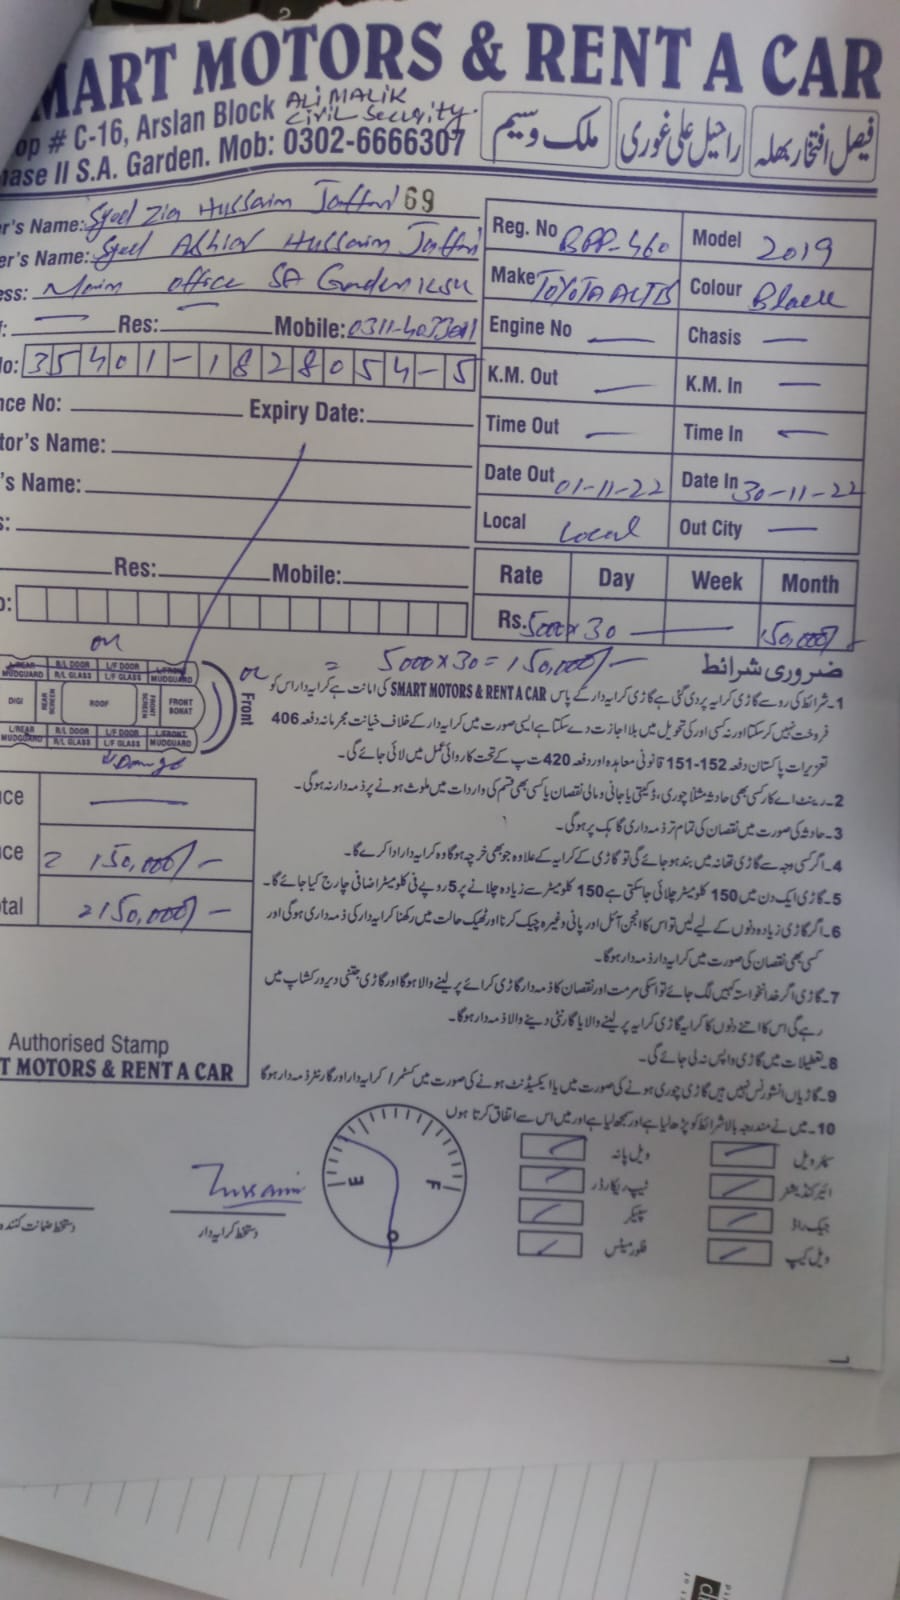 MART MOTORS & RENT A CAR
op # C-16, Arslan Block ALI MALIK
Civil Security
hase II S.A. Garden. Mob: 0302-6666307
ملک وسیم راحیل علی غوری فیصل افتخار بھلہ
er's Name: Syed Zia Hussain Jaffri 69
er's Name: Syed Hussain Jaffri
ess: Main office SA Garden KSK
Res: Mobile:
No: 35401-1828054-5
nce No: Expiry Date:
tor's Name:
's Name:
s:
Res: Mobile:
o:
Reg. No BPP-460 Model 2019
Make TOYOTA ALTIS Colour Black
Engine No — Chasis —
K.M. Out — K.M. In —
Time Out — Time In —
Date Out 01-11-22 Date In 30-11-22
Local Local Out City —
Rate Day Week Month
Rs. 5000 x 30 — 150,000/-
= 5000 x 30 = 150,000/-
ok ok
L/REAR MUDGUARD R/L DOOR R/L GLASS L/F DOOR L/F GLASS L/FRONT MUDGUARD
DIGI REAR SCREEN ROOF FRONT SCREEN FRONT BONAT Front
L/REAR MUDGUARD R/L DOOR R/L GLASS L/F DOOR L/F GLASS L/FRONT MUDGUARD
nce —
nce = 150,000/-
otal = 150,000/-
Authorised Stamp
T MOTORS & RENT A CAR
ضروری شرائط
1۔ شرائط کی رو سے گاڑی کرایہ پر دی گئی ہے گاڑی کرایہ دار کے پاس SMART MOTORS & RENT A CAR کی امانت ہے کرایہ دار اس کو
فروخت نہیں کر سکتا اور نہ کسی اور کی تحویل میں بلا اجازت دے سکتا ہے ایسی صورت میں کرایہ دار کے خلاف خیانت مجرمانہ دفعہ 406
تعزیرات پاکستان دفعہ 152-151 قانونی معاہدہ اور دفعہ 420 ت پ کے تحت کاروائی عمل میں لائی جائے گی۔
2۔ رینٹ اے کار کسی بھی حادثہ مثلاً چوری، ڈکیتی یا جانی و مالی نقصان یا کسی بھی قسم کی واردات میں ملوث ہونے پر ذمہ دار نہ ہوگی۔
3۔ حادثہ کی صورت میں نقصان کی تمام تر ذمہ داری گاہک پر ہوگی۔
4۔ اگر کسی وجہ سے گاڑی تھانہ میں بند ہو جائے گی تو گاڑی کے کرایہ کے علاوہ جو بھی خرچہ ہوگا وہ کرایہ دار ادا کرے گا۔
5۔ گاڑی ایک دن میں 150 کلومیٹر چلائی جا سکتی ہے 150 کلومیٹر سے زیادہ چلانے پر 5 روپے فی کلومیٹر اضافی چارج کیا جائے گا۔
6۔ اگر گاڑی زیادہ دنوں کے لیے لیں تو اس کا انجن آئل اور پانی وغیرہ چیک کرنا اور ٹھیک حالت میں رکھنا کرایہ دار کی ذمہ داری ہوگی اور
کسی بھی نقصان کی صورت میں کرایہ دار ذمہ دار ہوگا۔
7۔ گاڑی اگر خدانخواستہ کہیں لگ جائے تو اسکی مرمت اور نقصان کا ذمہ دار گاڑی کرائے پر لینے والا ہوگا اور گاڑی جتنی دیر ورکشاپ میں
رہے گی اس کا اتنے دنوں کا کرایہ گاڑی کرایہ پر لینے والا یا گارنٹی دینے والا ذمہ دار ہوگا۔
8۔ تعطیلات میں گاڑی واپس نہ لی جائے گی۔
9۔ گاڑیاں انشورنس نہیں ہیں گاڑی چوری ہونے کی صورت میں یا ایکسیڈنٹ ہونے کی صورت میں کسٹمر / کرایہ دار اور گارنٹر ذمہ دار ہوگا
10۔ میں نے مندرجہ بالا شرائط کو پڑھ لیا ہے اور سمجھ لیا ہے اور میں اس سے اتفاق کرتا ہوں
سپئر ویل ویل پانہ
ائیر کنڈیشنر ٹیپ ریکارڈر
جیک راڈ سپیکر
ویل کیپ فلور میٹس
E F
Hussain
دستخط کرایہ دار
دستخط ضمانت کنندہ